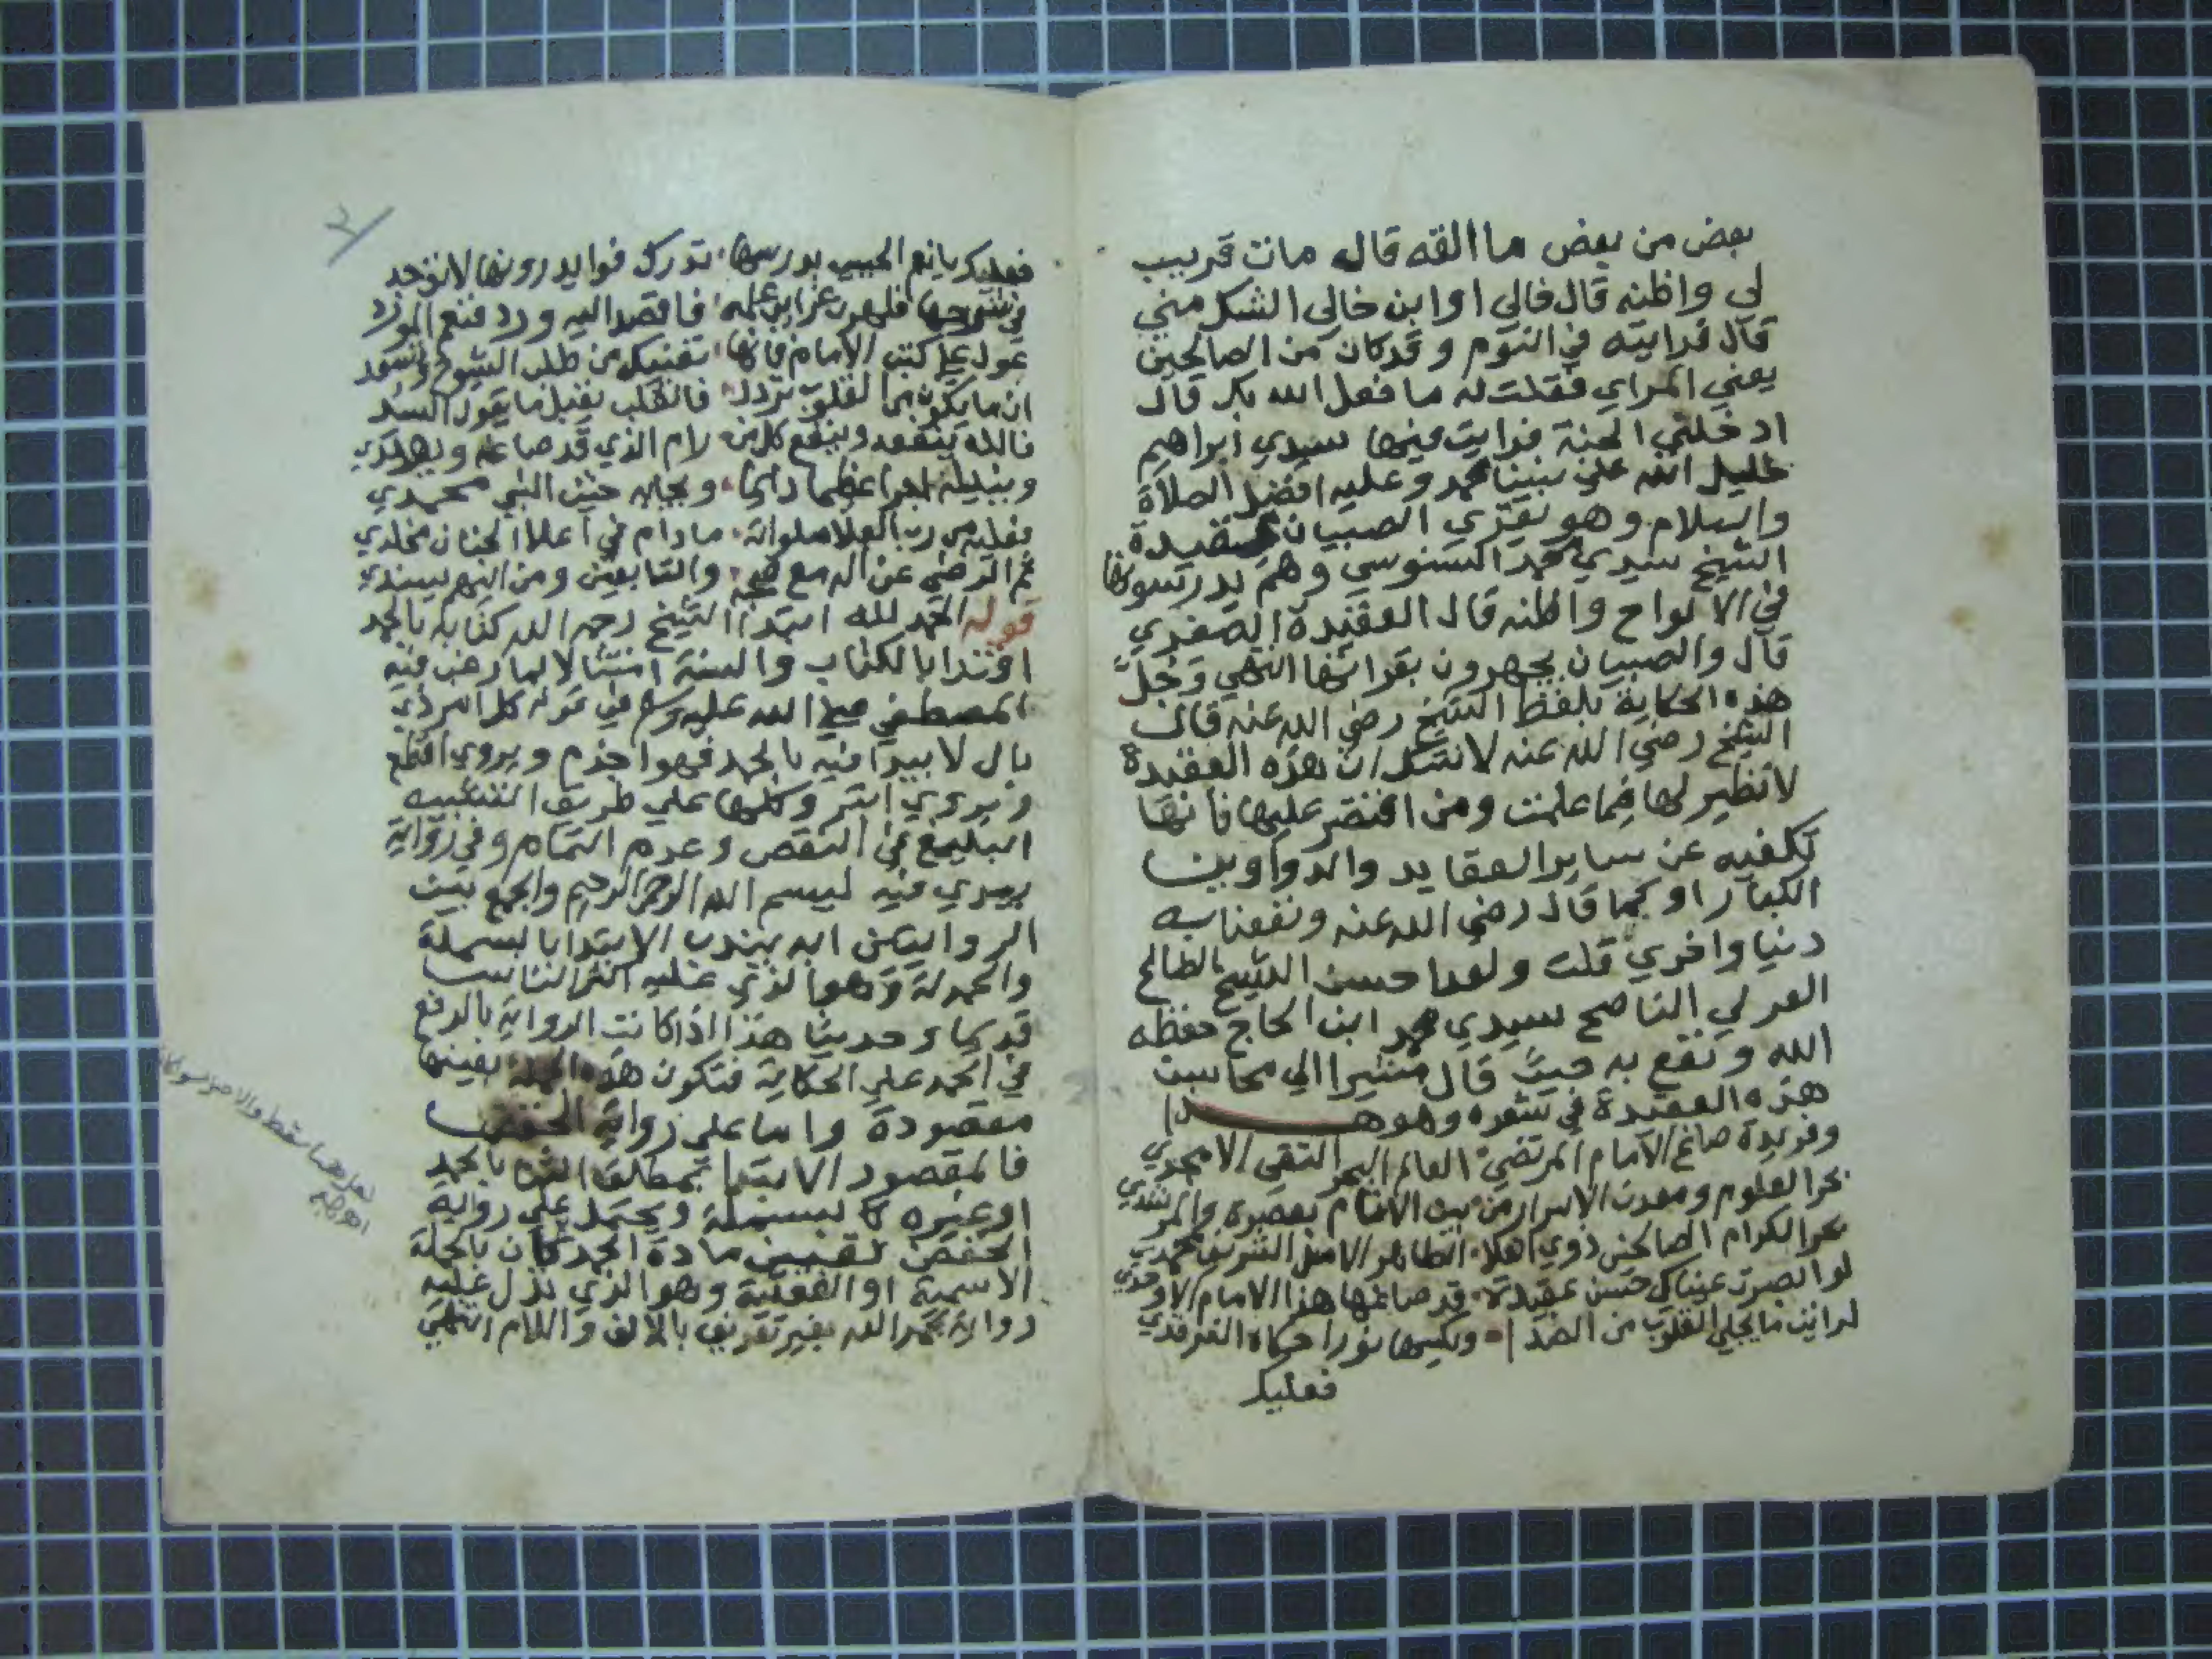 بعض من بعض ما القه قال مات قريب
لي واظنه قال خالي او ابن خالي الشك مني
قال فرايته في النوم وقد كان من الصالحين
يعني المراي فقلت له ما فعل الله بك قال
ادخلني الجنة فرايت فيها سيدي ابراهيم
خليل الله علي نبينا محمد وعليه افضل الصلاة
والسلام وهو يقري الصبيان عقيدة
الشيخ سيدي محمد السنوسي وهم يدرسونها
في الالواح واظنه قال العقيدة الصغري
قال والصبيان يجهرون بقراتها انتهي وجل
هذه الحكاية بلفظ الشيخ رضي الله عنه قال
الشيخ رضي الله عنه لا نشك ان هذه العقيدة
لا نظير لها فيما علمت ومن اقتصر عليها فانها
تكفيه عن ساير العقايد والدواوين
الكبار او كما قال رضي الله عنه ونفعنا به
دنيا واخري قلت ولقد احسن الشيخ الصالح
الولي الناصح سيدي محمد ابن الحاج حفظه
الله ونفع به حيث قال مشيرا الي محاسن
هذه العقيدة في شعره وهو هـــذا
وفريدة صاغ الامام المرتضي العالم البحر التقي الامجدي
بحر العلوم ومعدن الاسرار من الانام بعصره والمرشدي
الكرام الصالحين ذوي الطاهر الشريف محمدي
لو ابصرت عيناك حسن عقيدة قد صاغها هذا الامام الاوحدي
لرايت ما يجلي القلوب من الصدا ويكسها نورا حكاه الفرقدي
فعليك
فعليك يا نعم الحبيب بدرسها تدرك فوايد دونها لا توجد
في شرحها فلهن عزاير علمه فاقصد اليه ورد فنعم المورد
عول علي كتب الامام فانها تغنيك عن طلب الشيوخ وتسعد
ان ما يكون بها القلوب تردد فالقلب يقبل ما يقول السيد
فالله ينفعه وينفع كل من رام الذي قد صاغه ويهتدي
وينيله اجرا عظيما دائما وبجاه حيث النبي محمدي
فعليه من رب العلا صلواته ما دام في اعلا الجنان مخلدي
ثم الترضي عن اله مع صحبه والتابعين ومن اليهم يسندي
قوله الحمد لله ابتدا الشيخ رحمه الله كتابه بالحمد
اقتدا بالكتاب والسنة امتثالا لما رغب فيه
المصطفي صلي الله عليه وسلم في قوله كل امر ذي
بال لا يبدا فيه بالحمد فهو اجذم ويروي اقطع
ويروي ابتر وكلها علي طريق التشبيه
البليغ في النقص وعدم التمام وفي رواية
يبدي فيه لبسم الله الرحمن الرحيم والجمع بين
الروايتين انه يندب الابتدا بالبسملة
والحمدلة وهو الذي عليه اكثر الناس
قديما وحديثا هذا اذا كانت الرواية بالرفع
في الحمد علي الحكاية فتكون هذه الجملة بعينها
مقصودة واما علي رواية الخفض
فالمقصود الابتدا بمطلق الثنا بالحمد
او غيره كالبسملة ويحتمل علي رواية
الخفض لتعين مادة الحمد كان بالجملة
الاسمية او الفعلية وهو الذي نزل عليه
رواية بحمد الله بغير تعريف بالالف واللام انتهي
لعل هنا سقط والاصل